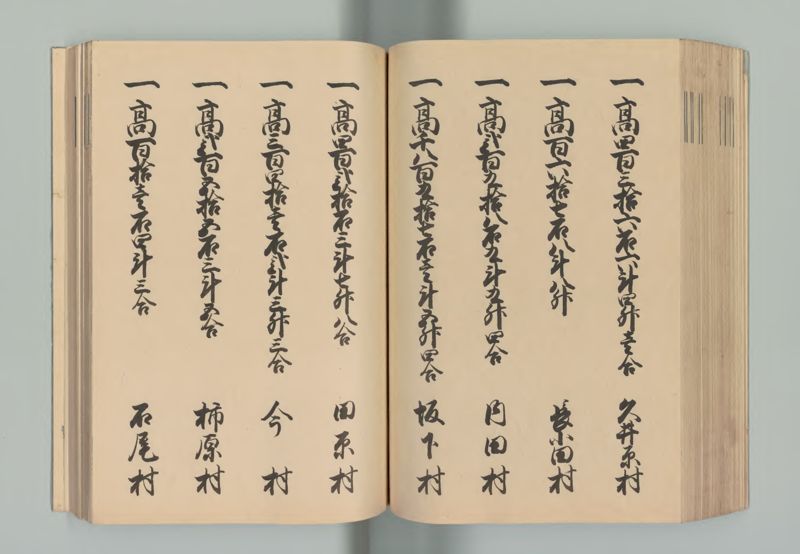 一高四百三拾六石六斗四升壱合 久井原村
一高百六拾七石八斗八升 長小田村
一高弐百九拾八石五斗五升四合 円田村
一高千八百五拾七石壱斗五升四合 坂下村
一高四百弐拾石三斗七升八合 田原村
一高三百四拾壱石弐斗三升三合 今村
一高弐百五拾五石三斗五合 柿原村
一高百拾壱石四斗三合 石尾村